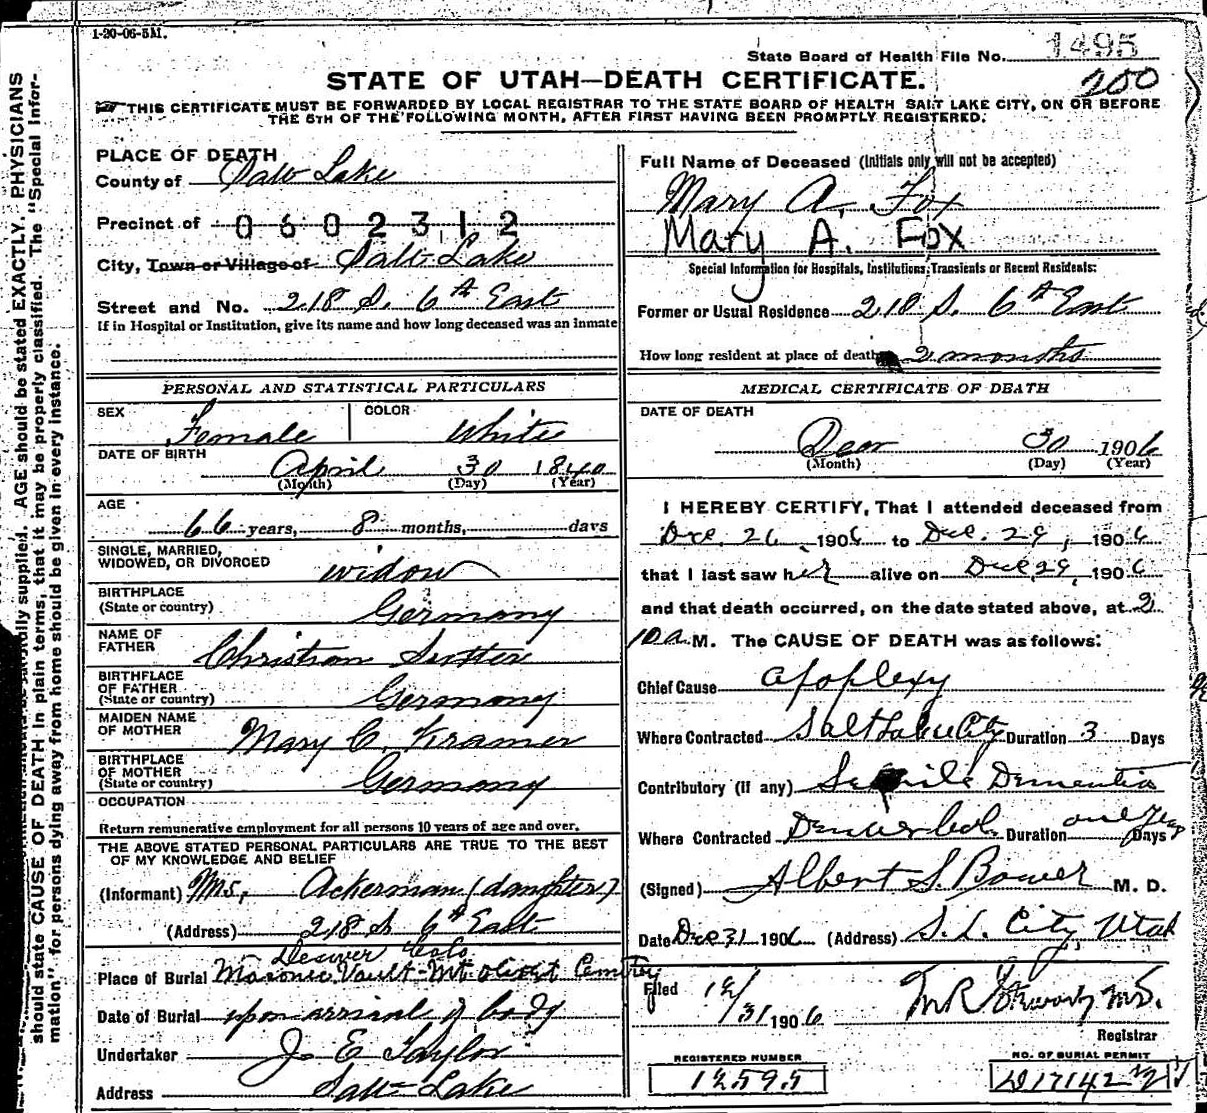 1-20-06-5M.
State Board of Health File No. 1495
200
STATE OF UTAH—DEATH CERTIFICATE.
THIS CERTIFICATE MUST BE FORWARDED BY LOCAL REGISTRAR TO THE STATE BOARD OF HEALTH SALT LAKE CITY, ON OR BEFORE
THE 5TH OF THE FOLLOWING MONTH, AFTER FIRST HAVING BEEN PROMPTLY REGISTERED.
PLACE OF DEATH
County of Salt Lake
Precinct of 0602312
City, Town or Village of Salt Lake
Street and No. 218 S. 6th East
If in Hospital or Institution, give its name and how long deceased was an inmate
Full Name of Deceased (Initials only will not be accepted)
Mary A. Fox
Mary A. Fox
Special Information for Hospitals, Institutions, Transients or Recent Residents:
Former or Usual Residence 218 S. 6th East
How long resident at place of death 2 months
PERSONAL AND STATISTICAL PARTICULARS
SEX Female COLOR White
DATE OF BIRTH April 30 1840
(Month) (Day) (Year)
AGE
66 years, 8 months, days
SINGLE, MARRIED,
WIDOWED, OR DIVORCED widow
BIRTHPLACE
(State or country) Germany
NAME OF
FATHER Christian
BIRTHPLACE
OF FATHER
(State or country) Germany
MAIDEN NAME
OF MOTHER Mary C. Kramer
BIRTHPLACE
OF MOTHER
(State or country) Germany
OCCUPATION
Return remunerative employment for all persons 10 years of age and over.
THE ABOVE STATED PERSONAL PARTICULARS ARE TRUE TO THE BEST
OF MY KNOWLEDGE AND BELIEF
(Informant) Mrs, Ackerman (daughter)
(Address) 218 S 6th East
Denver Colo
Place of Burial Masonic Vault-Mt Olivet Cemtry
Date of Burial upon arrival of body
Undertaker J. E Taylor
Address Salt Lake
MEDICAL CERTIFICATE OF DEATH
DATE OF DEATH
30 1906
(Month) (Day) (Year)
I HEREBY CERTIFY, That I attended deceased from
Dec. 26, 1906 to Dec. 29, 1906
that I last saw her alive on Dec 29, 1906
and that death occurred, on the date stated above, at 2
10 a M. The CAUSE OF DEATH was as follows:
Chief Cause apoplexy
Where Contracted Salt Lake City Duration 3 Days
Contributory (if any) Senile Dementia
Where Contracted Denver Col. Duration one Year Days
(Signed) Albert S. Bower M. D.
Date Dec 31 1906 (Address) S. L. City, Utah
Filed 12/31 1906
Registrar
REGISTERED NUMBER
12595
NO. OF BURIAL PERMIT
AGE should be stated EXACTLY. PHYSICIANS
should state CAUSE OF DEATH in plain terms, that it may be properly classified. The "Special Infor-
mation" for persons dying away from home should be given in every instance.